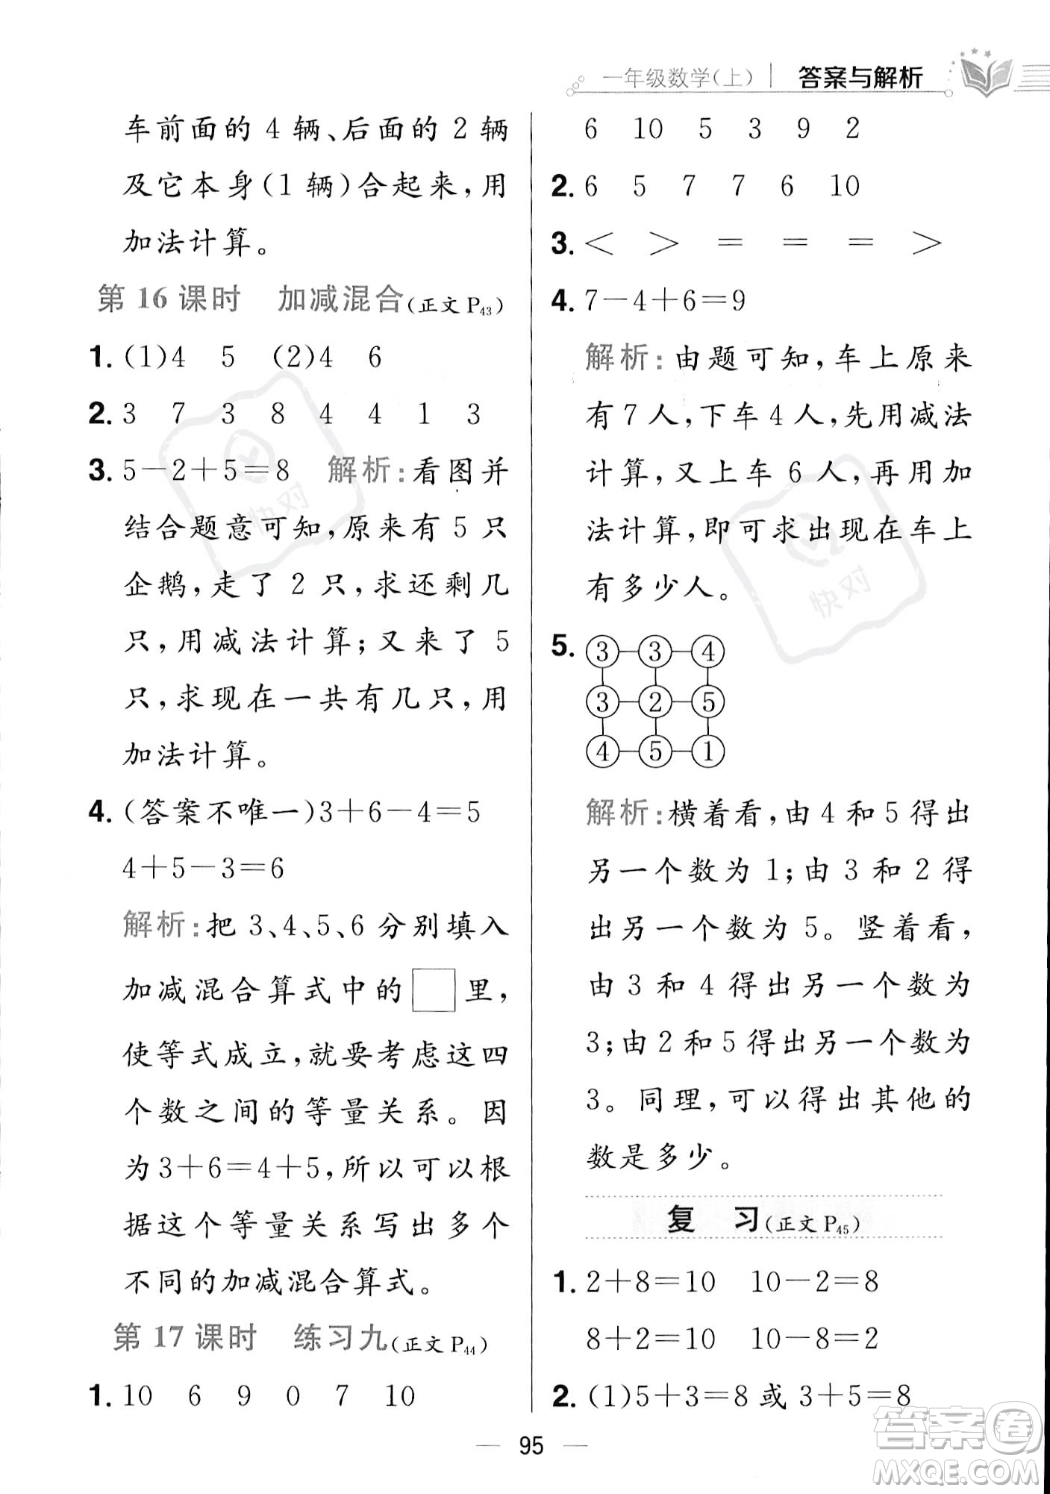 一年级数学(上) 答案与解析
车前面的 4 辆、后面的 2 辆
及它本身(1 辆)合起来,用
加法计算。
第 16 课时 加减混合(正文 P43)
1. (1)4 5 (2)4 6
2. 3 7 3 8 4 4 1 3
3. 5-2+5=8 解析:看图并
结合题意可知,原来有 5 只
企鹅,走了 2 只,求还剩几
只,用减法计算;又来了 5
只,求现在一共有几只,用
加法计算。
4. (答案不唯一)3+6-4=5
4+5-3=6
解析:把 3、4、5、6 分别填入
加减混合算式中的□里,
使等式成立,就要考虑这四
个数之间的等量关系。因
为 3+6=4+5,所以可以根
据这个等量关系写出多个
不同的加减混合算式。
第 17 课时 练习九(正文 P44)
1. 10 6 9 0 7 10
6 10 5 3 9 2
2. 6 5 7 7 6 10
3. < > = = = >
4. 7-4+6=9
解析:由题可知,车上原来
有 7 人,下车 4 人,先用减法
计算,又上车 6 人,再用加
法计算,即可求出现在车上
有多少人。
5. ③ ③ ④
③ ② ⑤
④ ⑤ ①
解析:横着看,由 4 和 5 得出
另一个数为 1;由 3 和 2 得
出另一个数为 5。竖着看,
由 3 和 4 得出另一个数为
3;由 2 和 5 得出另一个数为
3。同理,可以得出其他的
数是多少。
复 习(正文 P45)
1. 2+8=10 10-2=8
8+2=10 10-8=2
2. (1)5+3=8 或 3+5=8
95
快对
快对
答案卷
MXQE.COM